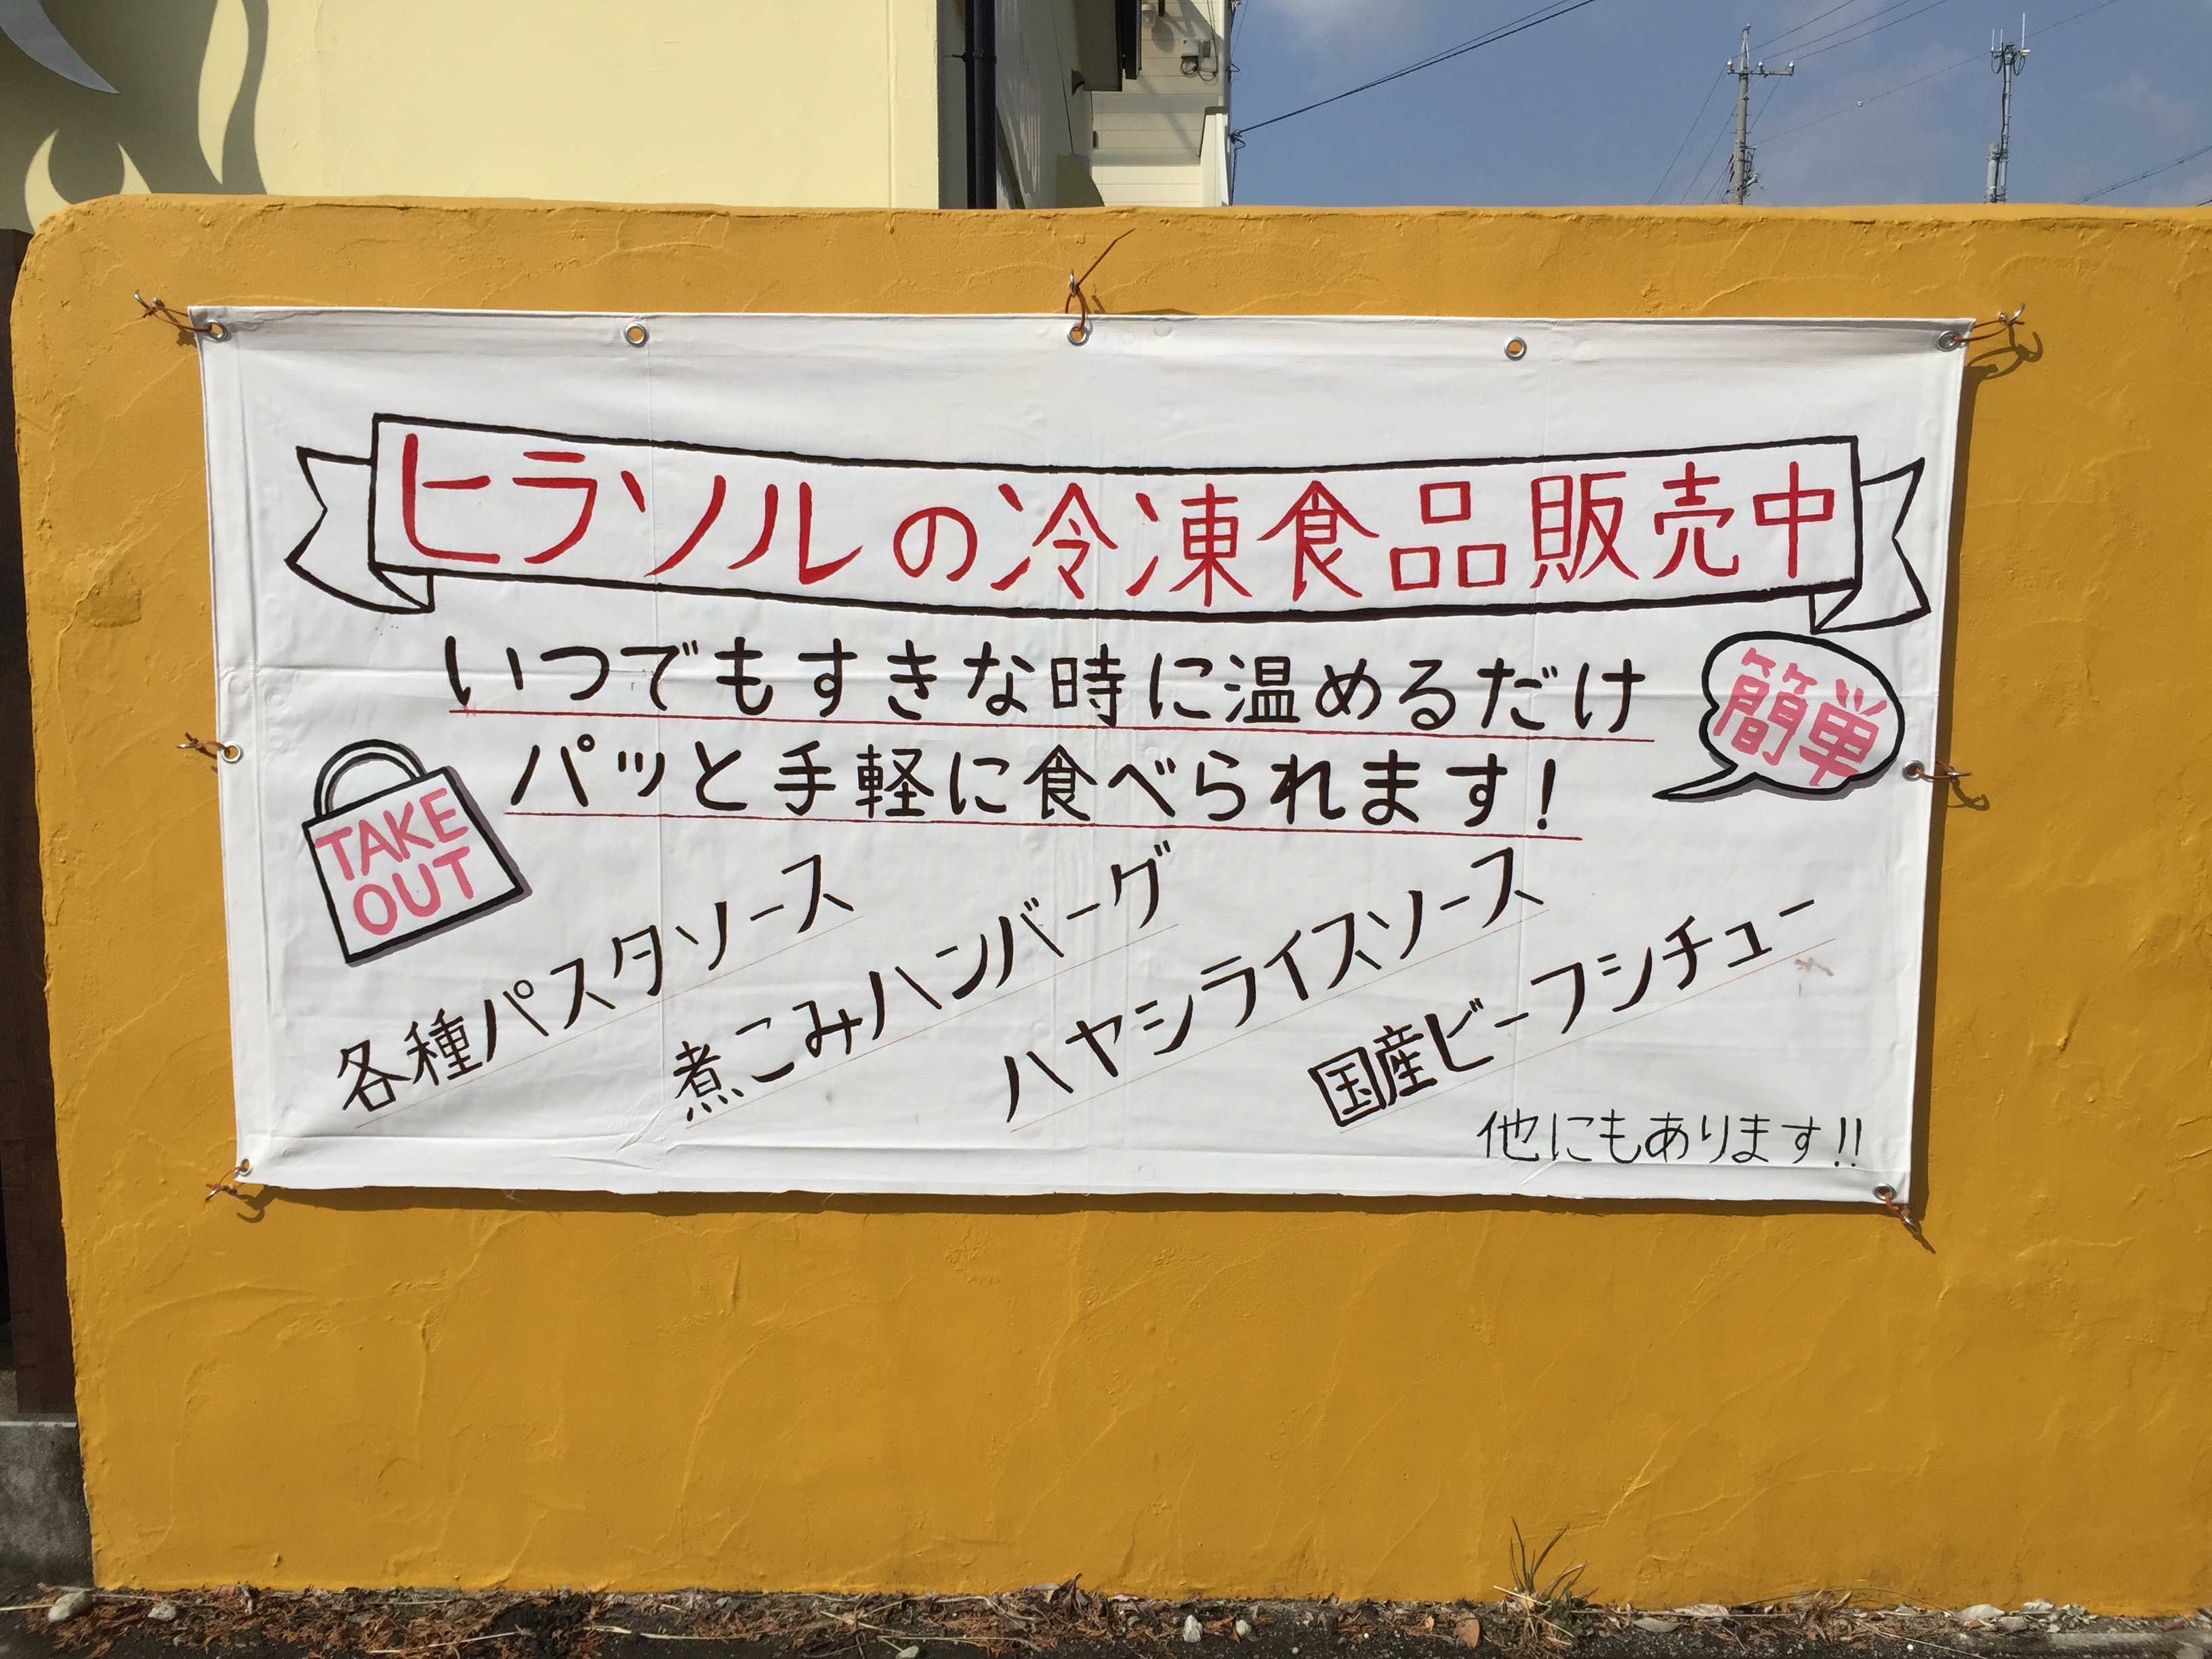 ヒラソルの冷凍食品販売中
いつでもすきな時に温めるだけ
簡単
パッと手軽に食べられます!
TAKE
OUT
各種パスタソース
煮こみハンバーグ
ハヤシライスソース
国産ビーフシチュー
他にもあります!!